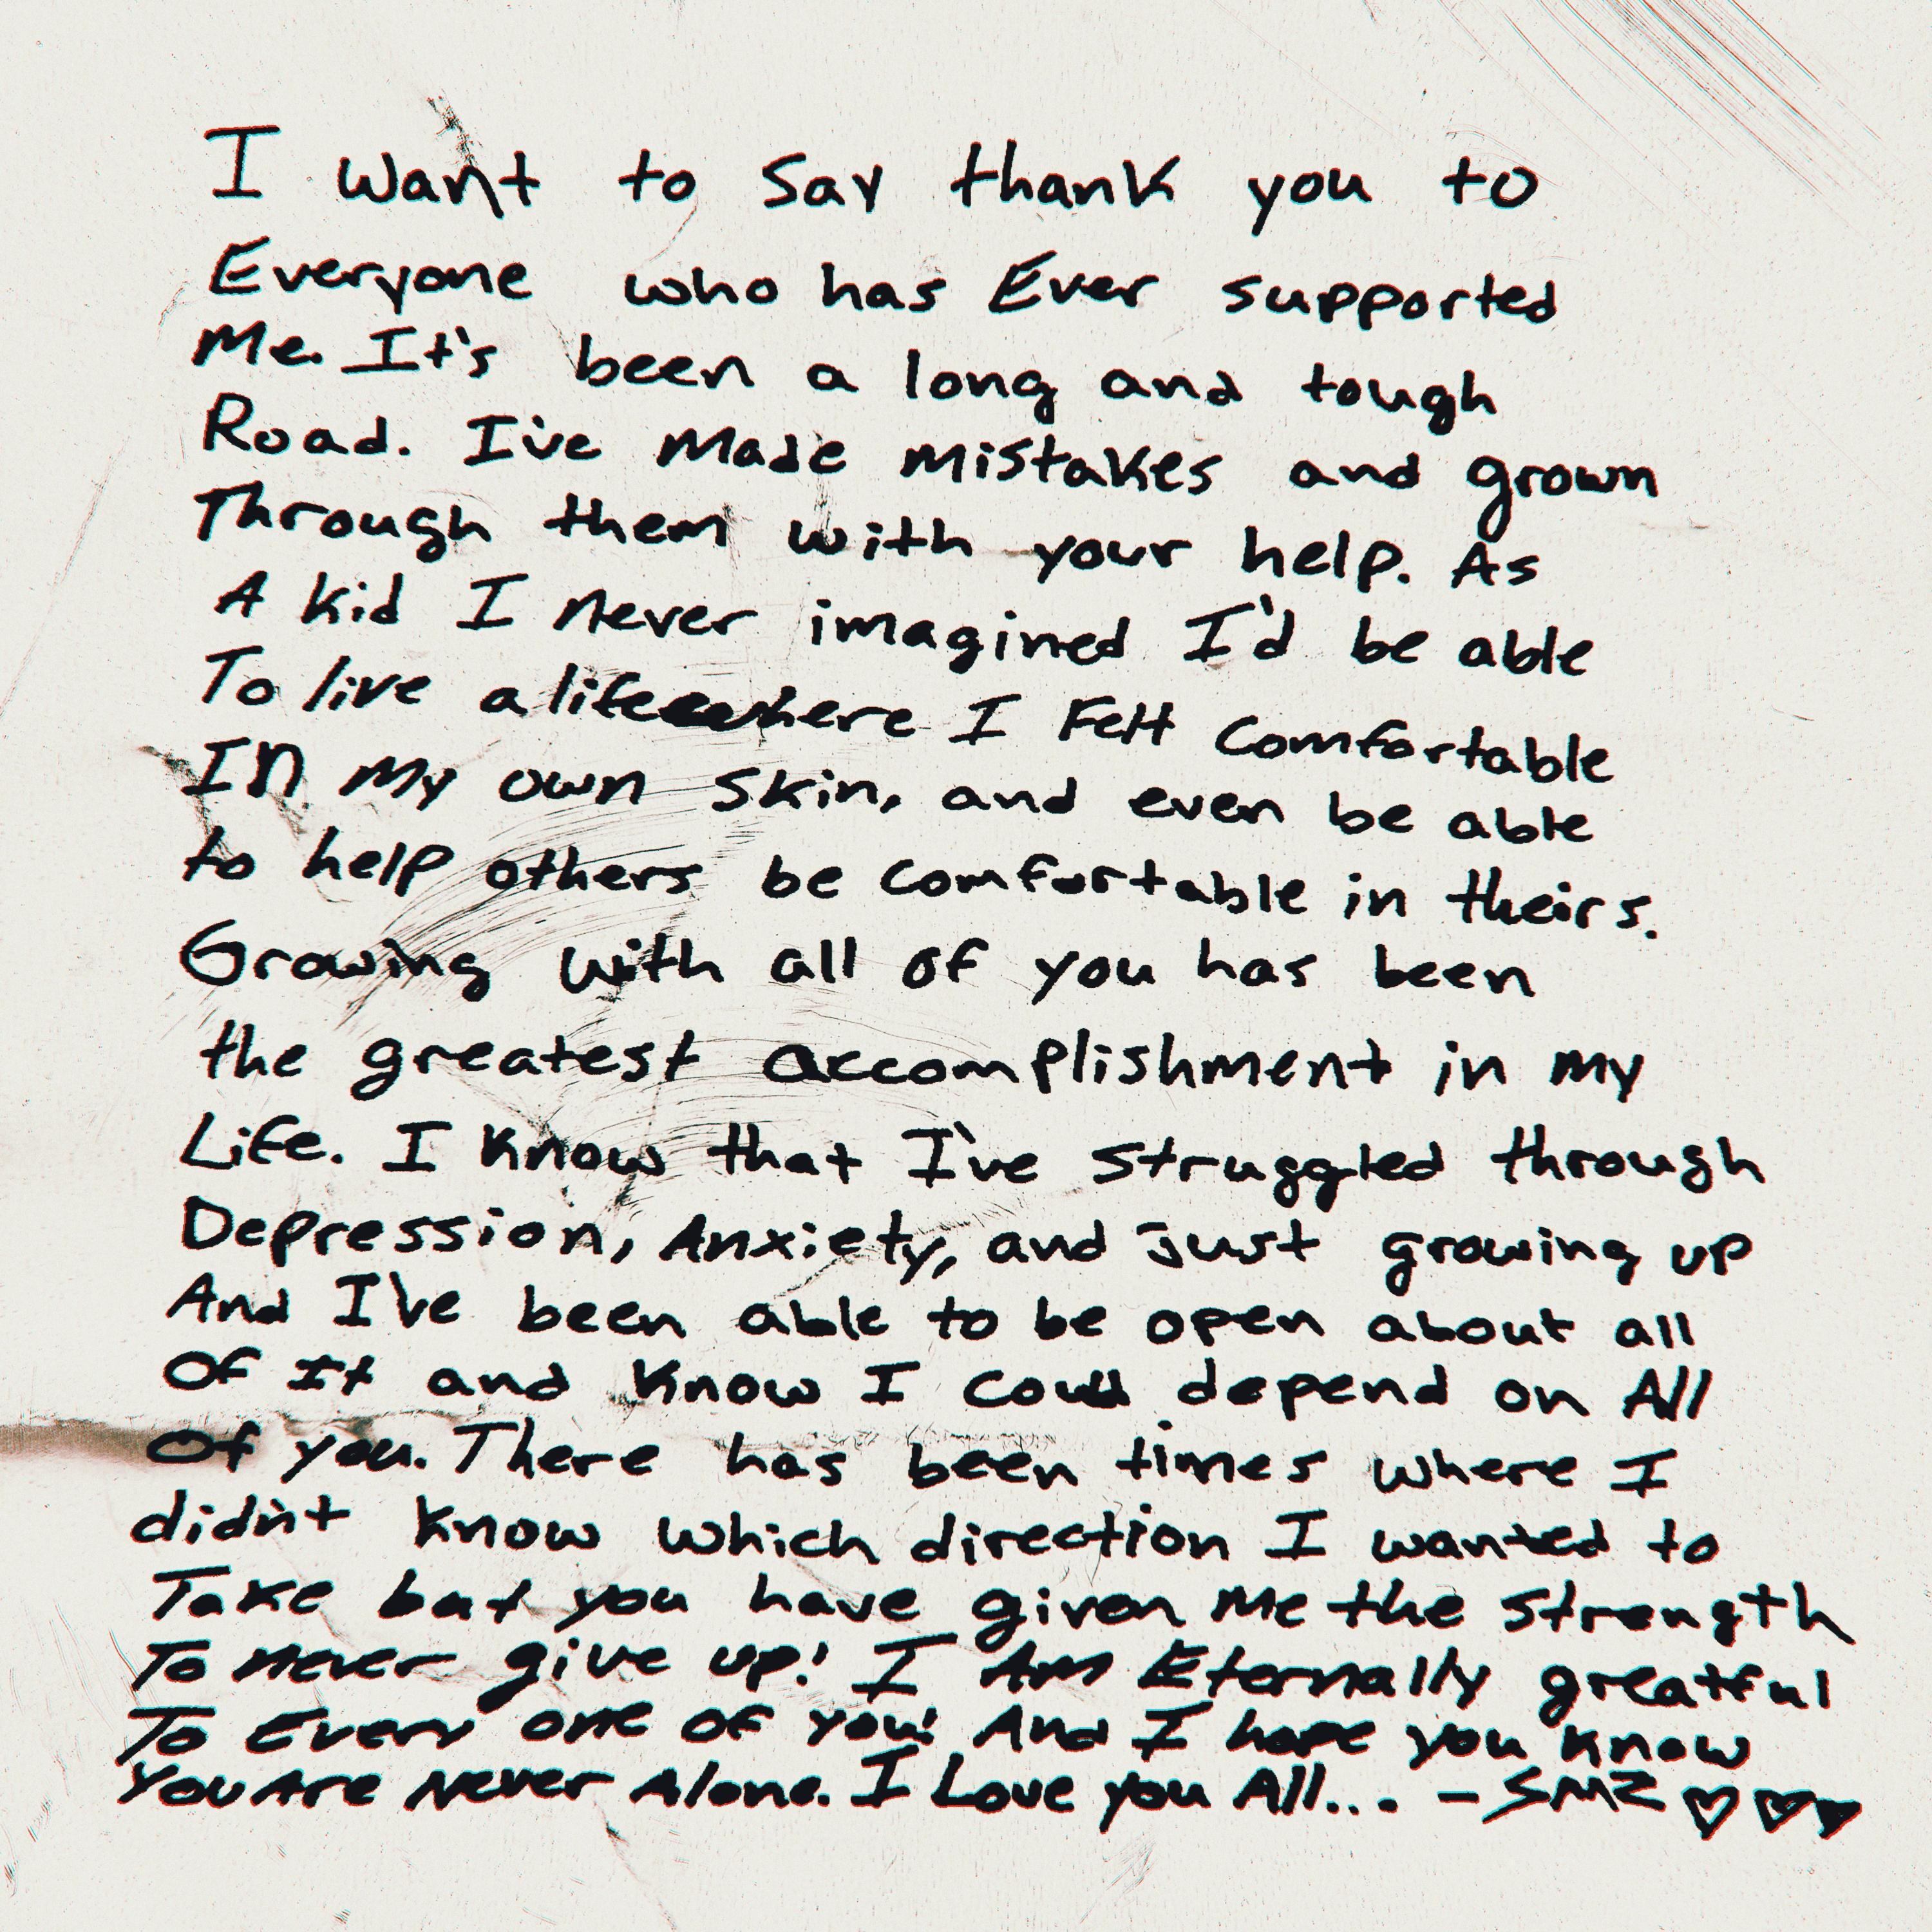 I want to say thank you to
Everyone who has Ever supported
Me. It's been a long and tough
Road. I've Made Mistakes and grown
Through them with your help. As
A kid I never imagined I'd be able
To live a life where I Felt Comfortable
In My own Skin, and even be able
to help others be comfortable in theirs.
Growing with all of you has been
the greatest accomplishment in my
Life. I know that I've struggled through
Depression, Anxiety, and just growing up
And I've been able to be open about all
Of It and know I could depend on All
Of you. There has been times where I
didn't know which direction I wanted to
Take but you have given Me the strength
To never give up! I Am Eternally greatful
To Every one of you! And I hope you know
You Are Never Alone. I Love you All... - SMZ ♡♡♥